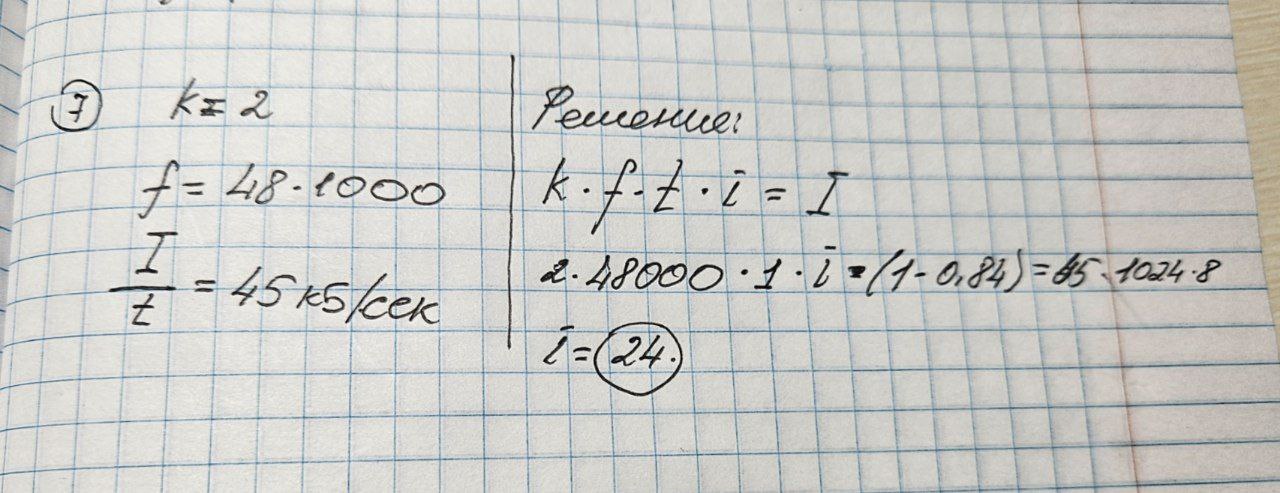 7
k = 2
f = 48 · 1000
I/t = 45 кБ/сек
Решение:
k · f · t · i = I
2 · 48000 · 1 · i · (1 - 0,84) = 45 · 1024 · 8
i = 24.